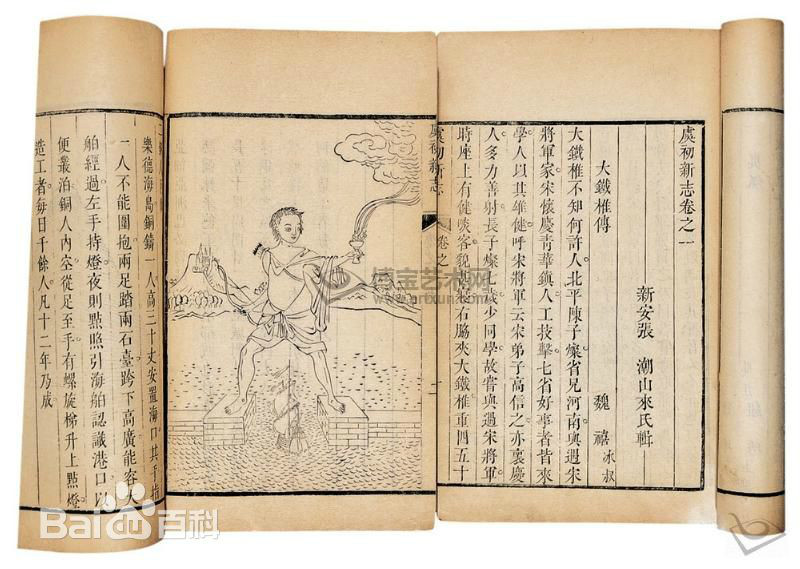 虞初新志卷之一
新安張 潮山來氏輯
大鐵椎傳
魏 禧冰叔
大鐵椎不知何許人北平陳子燦省兄河南與遇宋
將軍家宋懷慶青華鎮人工技擊七省好事者皆來
學人以其雄健呼宋將軍云宋弟子高信之亦懷慶
人多力善射長子燦七歲少同學故嘗與過宋將軍
時座上有健啖客貌甚寢右脇夾大鐵椎重四五十
虞初新志
卷之一
樂德海島銅鑄一人高三十丈安置海口其手指
一人不能圍抱兩足踏兩石臺跨下高廣能容大
舶經過左手持燈夜則點照引海舶認識港口以
便叢泊銅人內空從足至手有螺旋梯升上點燈
造工者每日千餘人凡十二年乃成
博宝艺术网
www.artxun.com
Bai百科